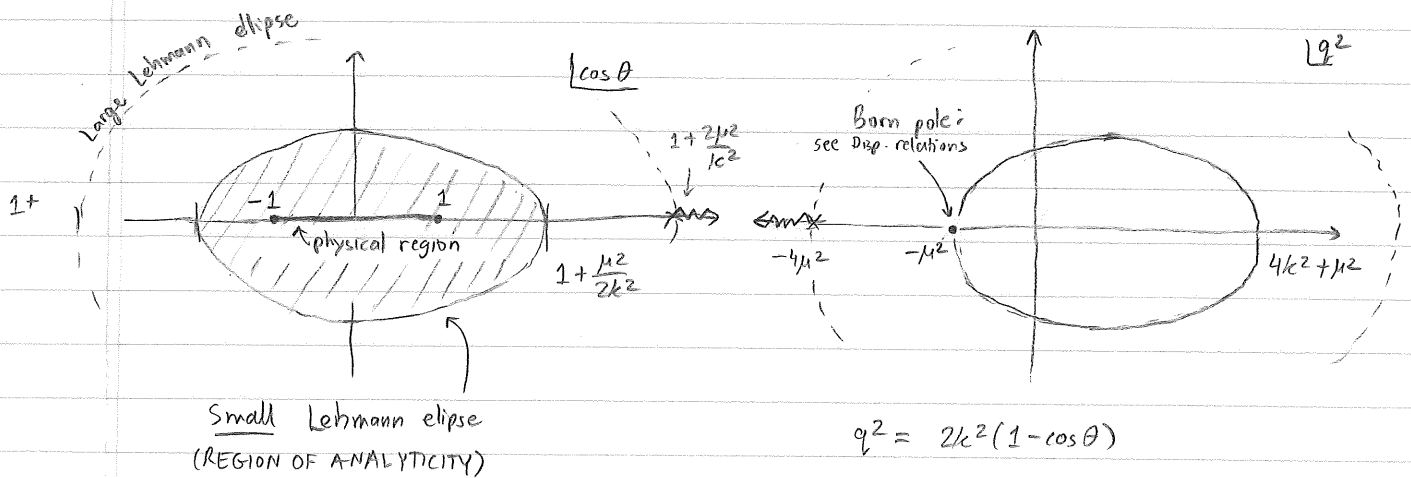 Large Lehmann elipse
⌊cos θ
1 + 2μ²/k²
1+
-1
1
physical region
1 + μ²/2k²
Small Lehmann elipse
(REGION OF ANALYTICITY)
⌊q²
Born pole:
see Disp. relations
-4μ²
-μ²
4k² + μ²
q² = 2k²(1-cos θ)